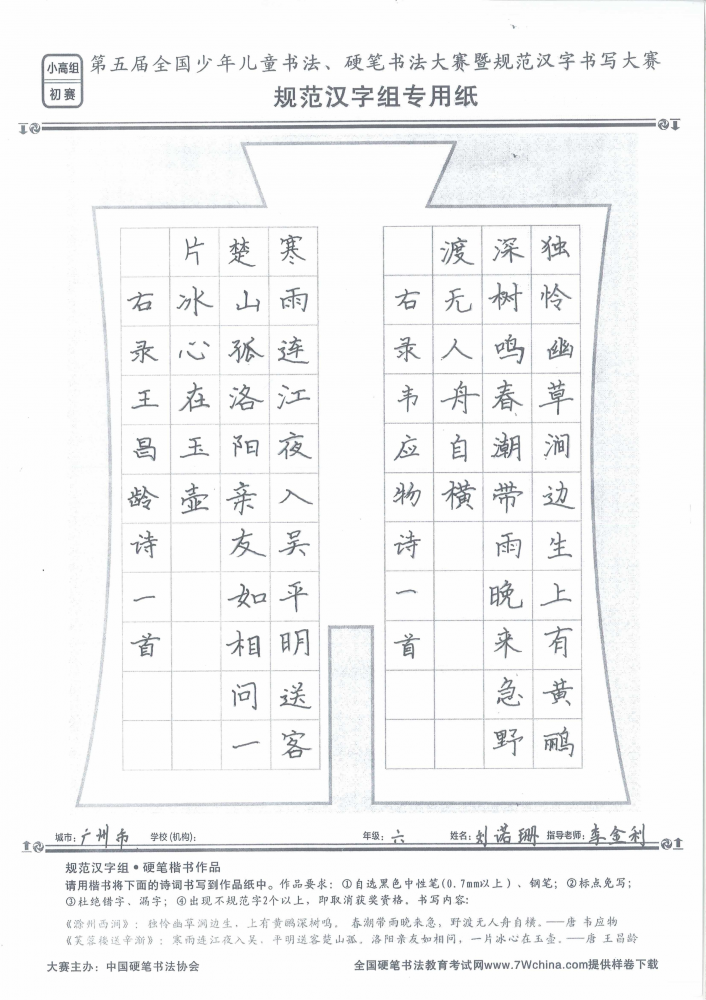 小高组
初赛
第五届全国少年儿童书法、硬笔书法大赛暨规范汉字书写大赛
规范汉字组专用纸
独怜幽草涧边生上有黄鹂
深树鸣春潮带雨晚来急野
渡无人舟自横
右录韦应物诗一首
寒雨连江夜入吴平明送客
楚山孤洛阳亲友如相问一
片冰心在玉壶
右录王昌龄诗一首
城市：广州市 学校（机构）： 年级：六 姓名：刘诺珊 指导老师：李金利
规范汉字组·硬笔楷书作品
请用楷书将下面的诗词书写到作品纸中。作品要求：①自选黑色中性笔（0.7mm以上）、钢笔；②标点免写；
③杜绝错字、漏字；④出现不规范字2个以上，即取消获奖资格。书写内容：
《滁州西涧》：独怜幽草涧边生，上有黄鹂深树鸣。 春潮带雨晚来急，野渡无人舟自横。——唐 韦应物
《芙蓉楼送辛渐》：寒雨连江夜入吴，平明送客楚山孤。洛阳亲友如相问，一片冰心在玉壶。——唐 王昌龄
大赛主办：中国硬笔书法协会 全国硬笔书法教育考试网www.7Wchina.com提供样卷下载